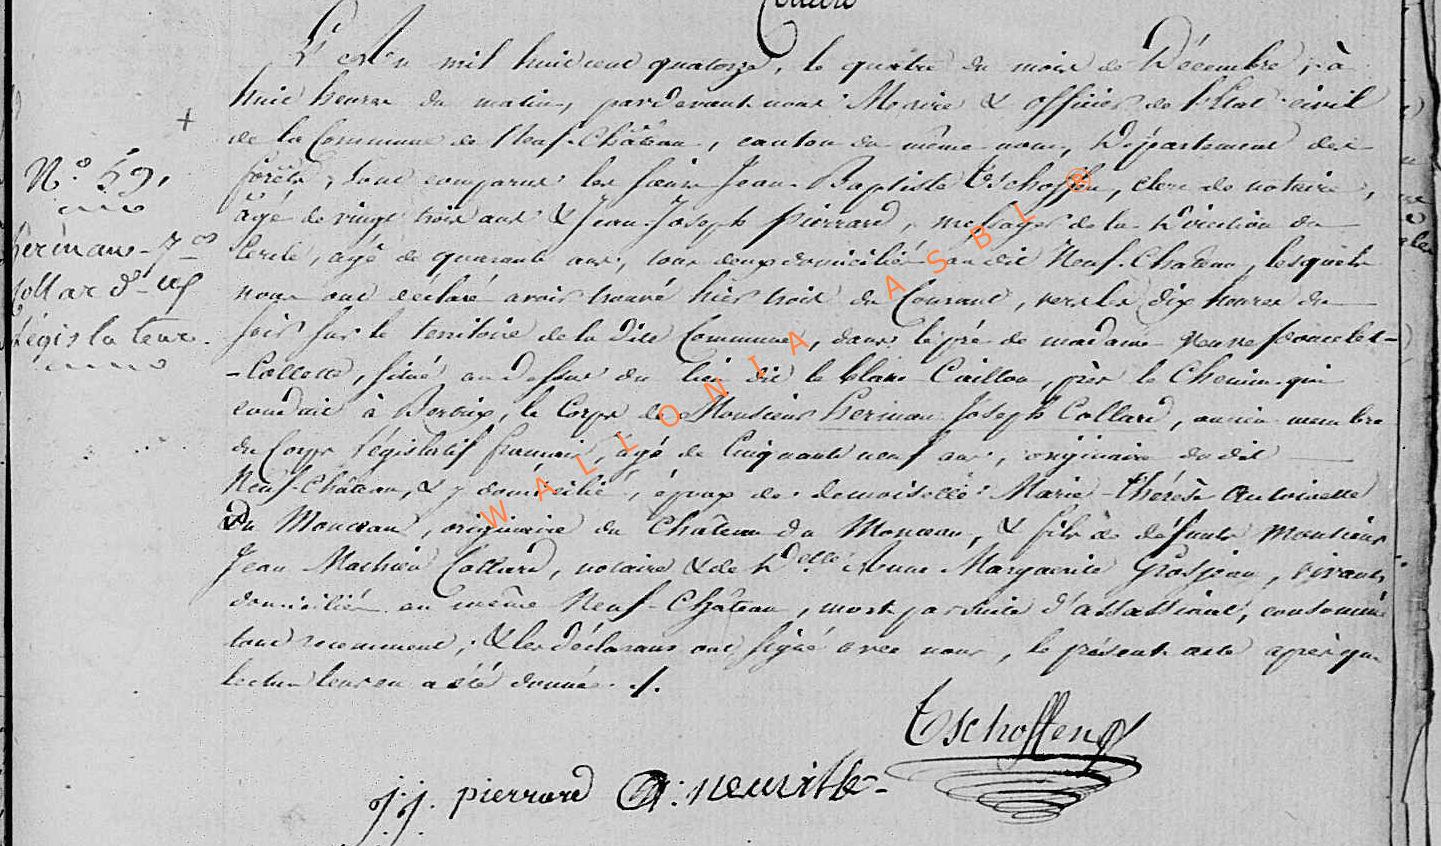 Collard
L'an mil huit cent quatorze, le quatre du mois de Décembre, à
huit heures du matin, pardevant nous Maire & officier de l'Etat-civil
de la Commune de Neuf-Château, canton du même nom, Département des
forêts, sont comparus les sieurs Jean-Baptiste Tschoffen, clerc de notaire,
âgé de vingt trois ans & Jean-Joseph Pierrard, messager de la Direction du
Cercle, âgé de quarante ans, tous deux domiciliés au dit Neuf-Château, lesquels
nous ont déclaré avoir trouvé hier trois du Courant, vers les dix heures du
soir sur le territoire de la dite Commune, dans le pré de madame veuve poncelet-
-Collette, situé au dessus du lieu dit le blanc Caillou, près le Chemin qui
conduit à Bertrix, le Corps de Monsieur herman Joseph Collard, ancien membre
du Corps législatif français, âgé de Cinquante neuf ans, originaire du dit
Neuf-Château, & y domicilié, époux de demoiselle Marie-thérèse Antoinette
Du Monceau, originaire du Château du Monceau, & fils de défunts Monsieur
Jean Mathieu Collard, notaire & de Delle Anne Marguerite Grosjean, vivants
domiciliés au même Neuf-Château, mort par suite d'assassinat, consommé
tout récemment; & les déclarans ont signé avec nous, le présent acte après que
lecture leur en a été donnée ./.
N.° 59.
herman-
Collard
Législateur.
Tschoffen
j. j. pierrard
neuville
WALLONIA ASBL ®